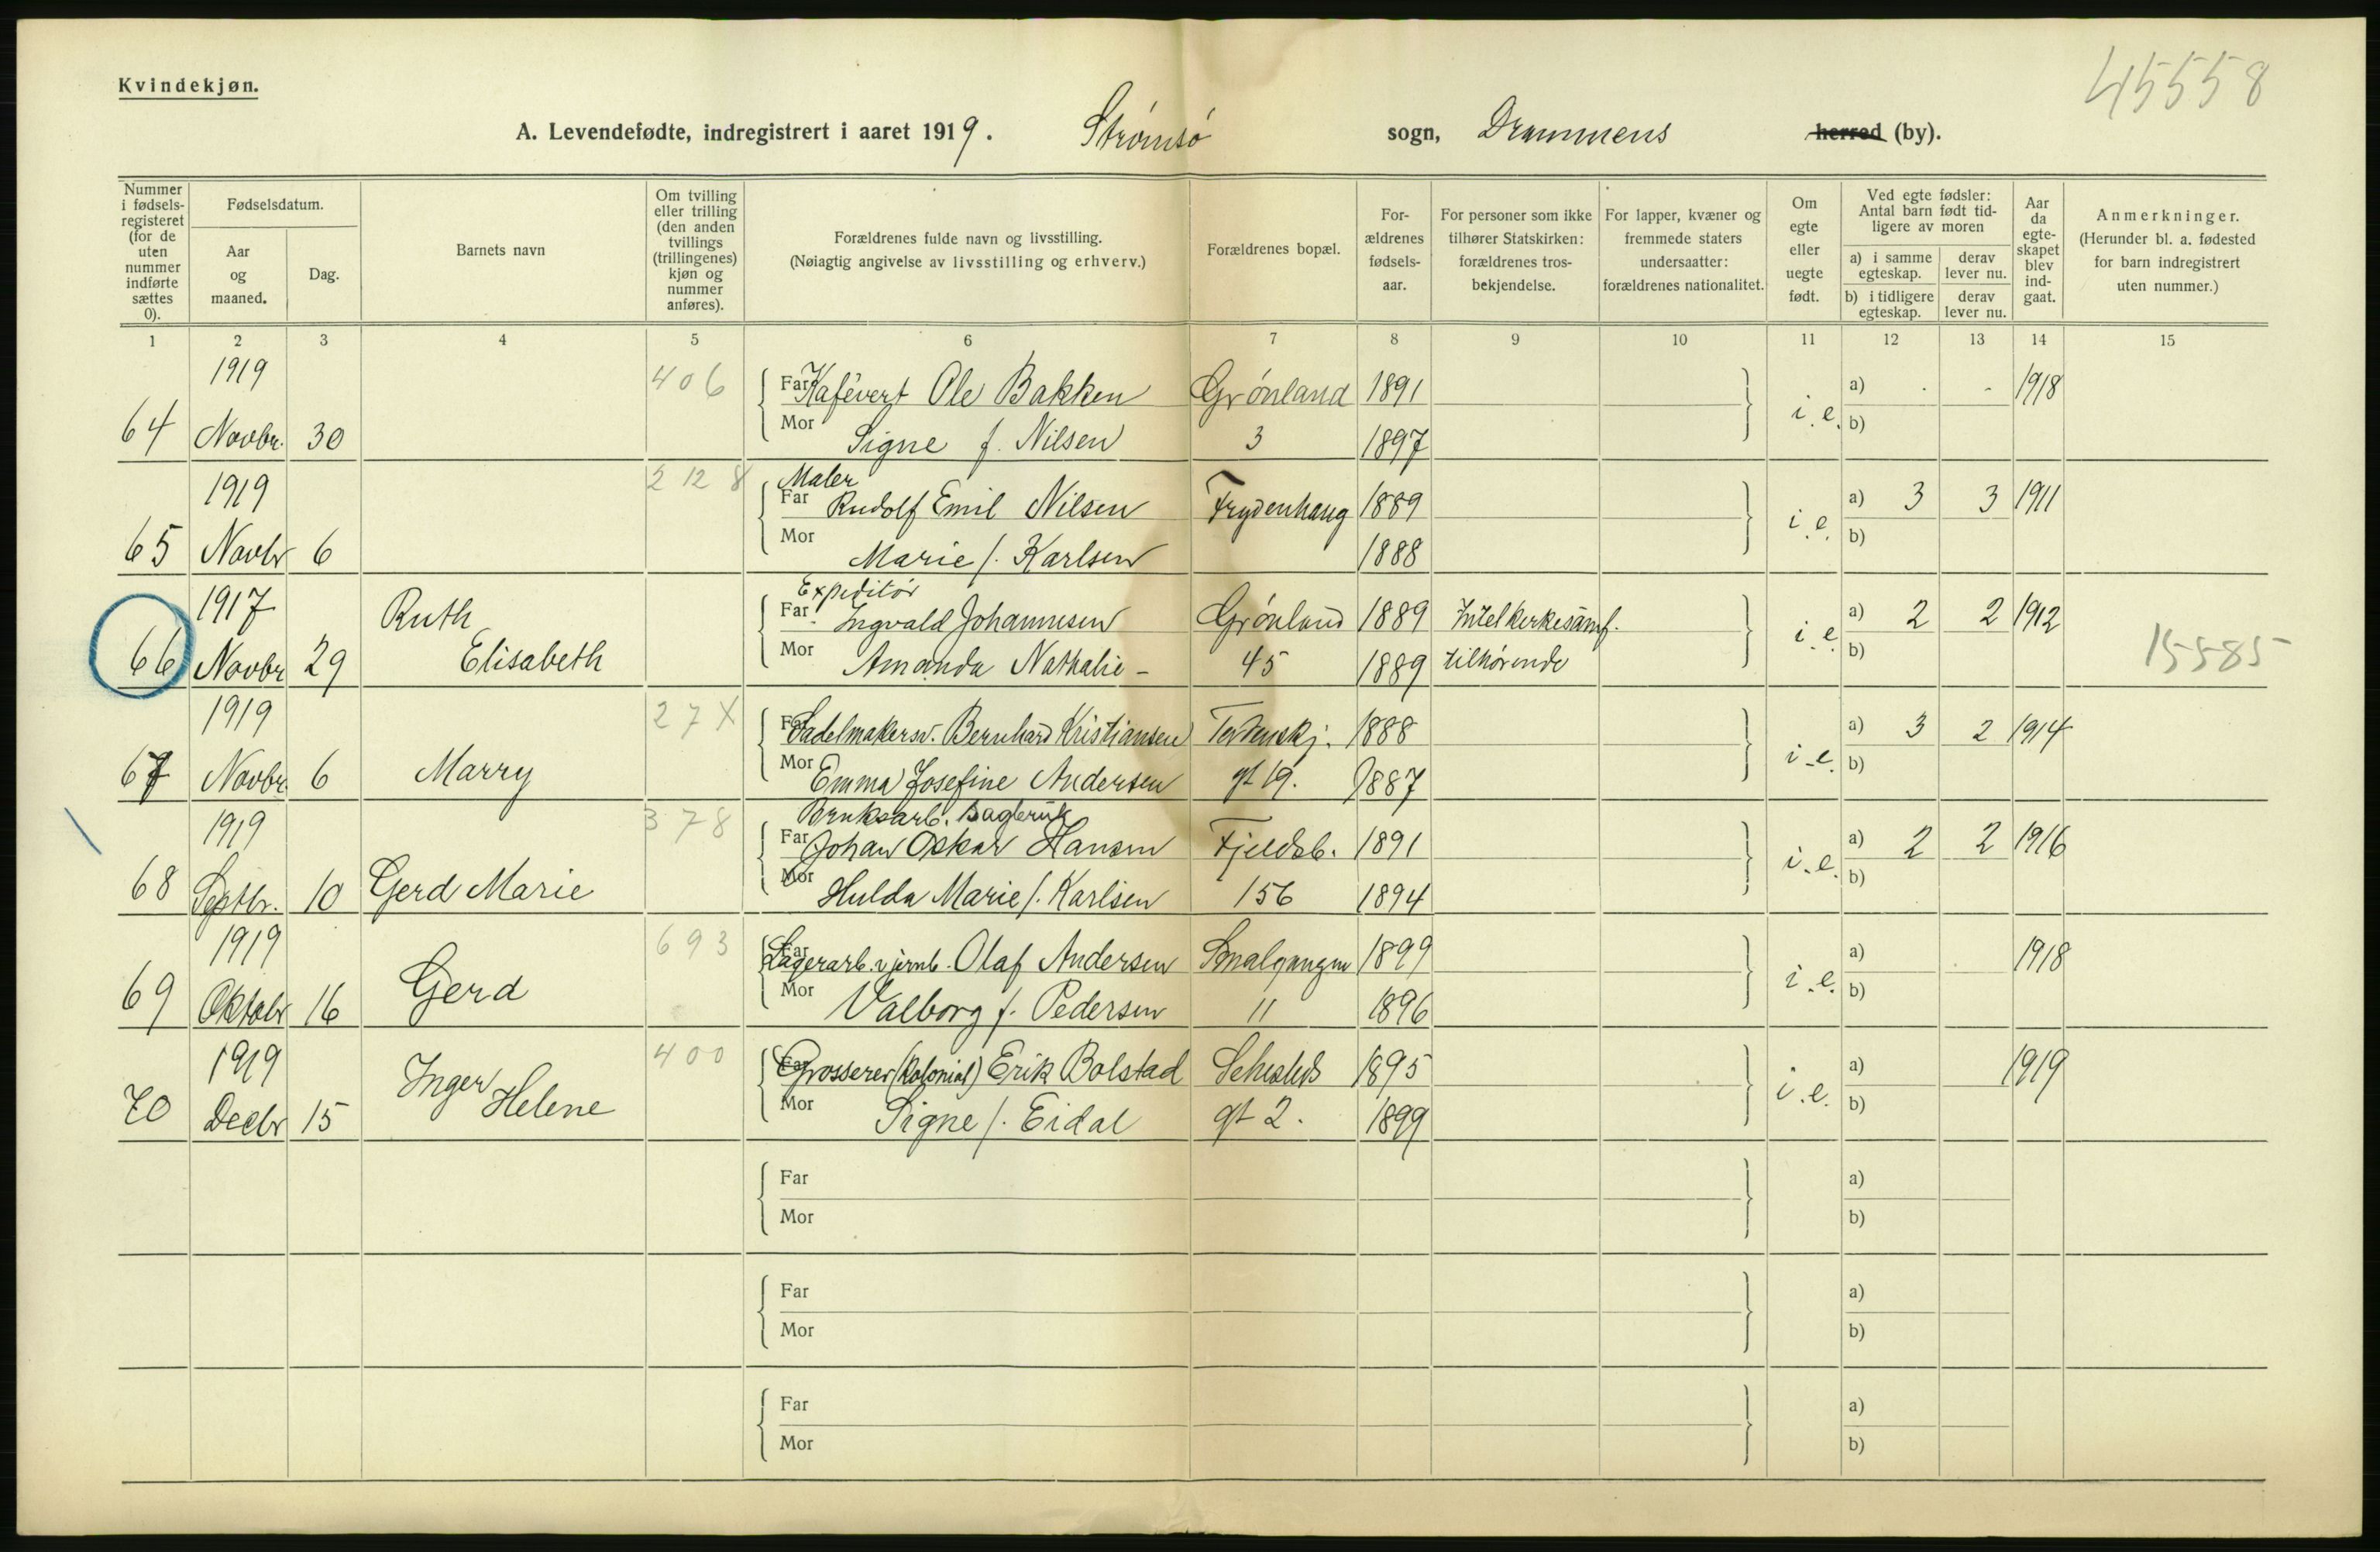 Kvindekjøn.
45558
A. Levendefødte, indregistrert i aaret 1919. Strømsø sogn, Drammens herred (by).
Nummer i fødselsregisteret (for de uten nummer indførte sættes 0).
Fødselsdatum.
Aar og maaned.
Dag.
Barnets navn
Om tvilling eller trilling (den anden tvillings (trillingenes) kjøn og nummer anføres).
Forældrenes fulde navn og livsstilling.
(Nøiagtig angivelse av livsstilling og erhverv.)
Forældrenes bopæl.
Forældrenes fødselsaar.
For personer som ikke tilhører Statskirken: forældrenes trosbekjendelse.
For lapper, kvæner og fremmede staters undersaatter: forældrenes nationalitet.
Om egte eller uegte født.
Ved egte fødsler: Antal barn født tidligere av moren
a) i samme egteskap.
derav lever nu.
b) i tidligere egteskap.
derav lever nu.
Aar da egteskapet blev indgaat.
Anmerkninger.
(Herunder bl. a. fødested for barn indregistrert uten nummer.)
1 2 3 4 5 6 7 8 9 10 11 12 13 14 15
1919 406 Far Kafévert Ole Bakken Grønland 1891 a) . - 1918
64 Novbr. 30 Mor Signe f. Nilsen 3 1897 i.e. b)
1919 2 12 8 Maler
Far Rudolf Emil Nilsen Frydenhaug 1889 a) 3 3 1911
65 Novbr 6 Mor Marie f. Karlsen 1888 i.e. b)
1917 Ruth Expeditør
Far Ingvald Johannesen Grønland 1889 Intet kirkesamf. a) 2 2 1912
66 Novbr 29 Elisabeth Mor Amanda Nathalie - 45 1889 tilhørende i.e. b) 15585
1919 27X Far Sadelmakersv. Bernhard Kristiansen 1888 a) 3 2 1914
67 Novbr. 6 Marry Mor Emma Josefine Andersen gt 19. 1887 i.e. b)
1919 378 Bruksarb.
Far Johan Oskar Hansen Fjeldsb. 1891 a) 2 2 1916
68 Septbr. 10 Gerd Marie Mor Hulda Marie f. Karlsen 156 1894 i.e. b)
1919 693 Far Lagerarb. v jernb. Olaf Andersen Smalgangen 1899 a) 1918
69 Oktobr 16 Gerd Mor Valborg f. Pedersen 11 1896 i.e. b)
1919 Inger 400 Far Grosserer (Kolonial) Erik Bolstad 1895 a) 1919
70 Decbr 15 Helene Mor Signe f. Eidal gt 2. 1899 i.e. b)
Far a)
Mor b)
Far a)
Mor b)
Far a)
Mor b)